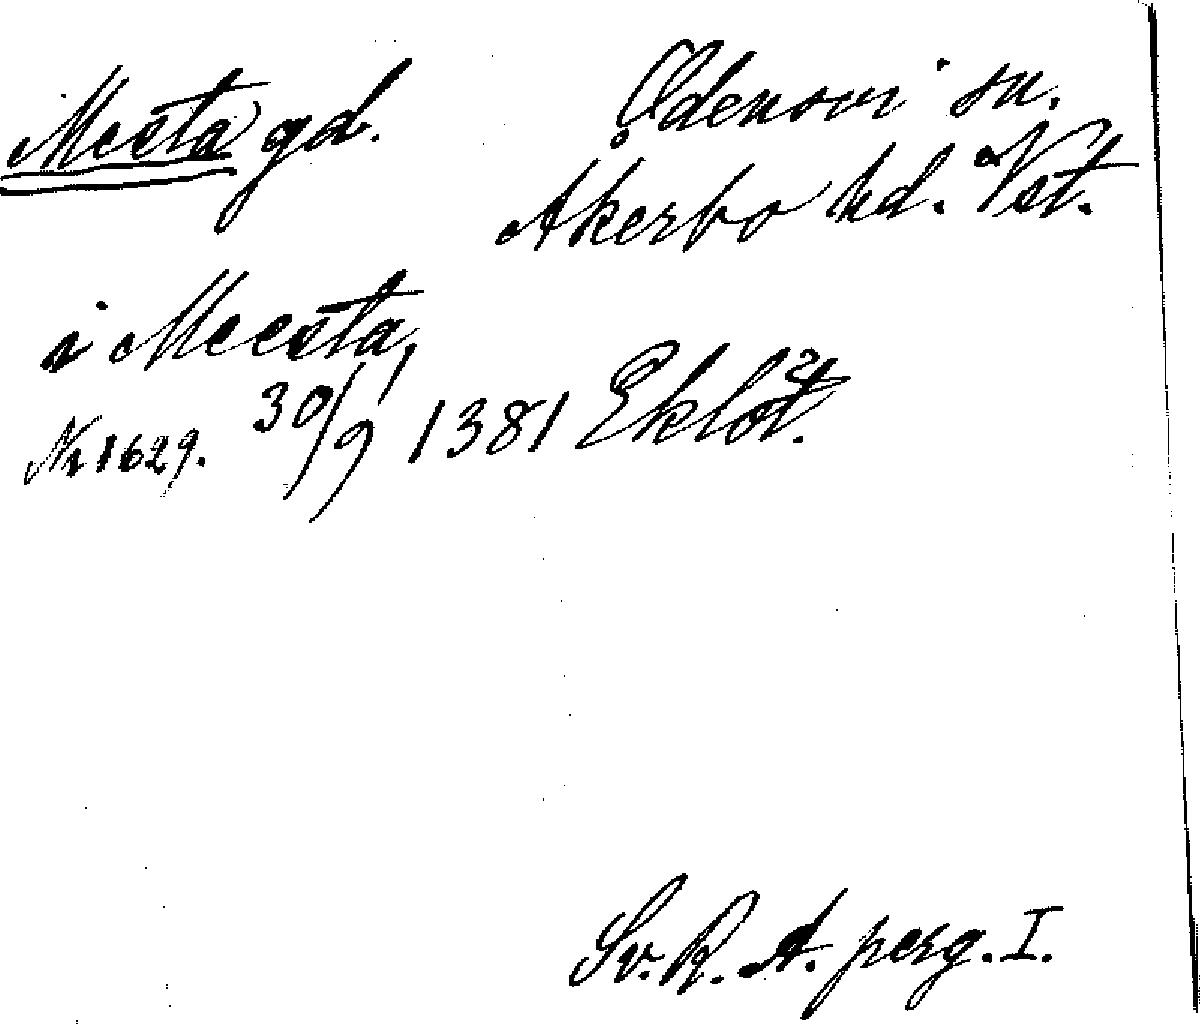 Mesta gd. Odensvi sn.
Åkerbo hd. Vst.
i Meesta,
Nr 1629. 30/9 1381 Eklöt.
Sv. R. A. perg. I.